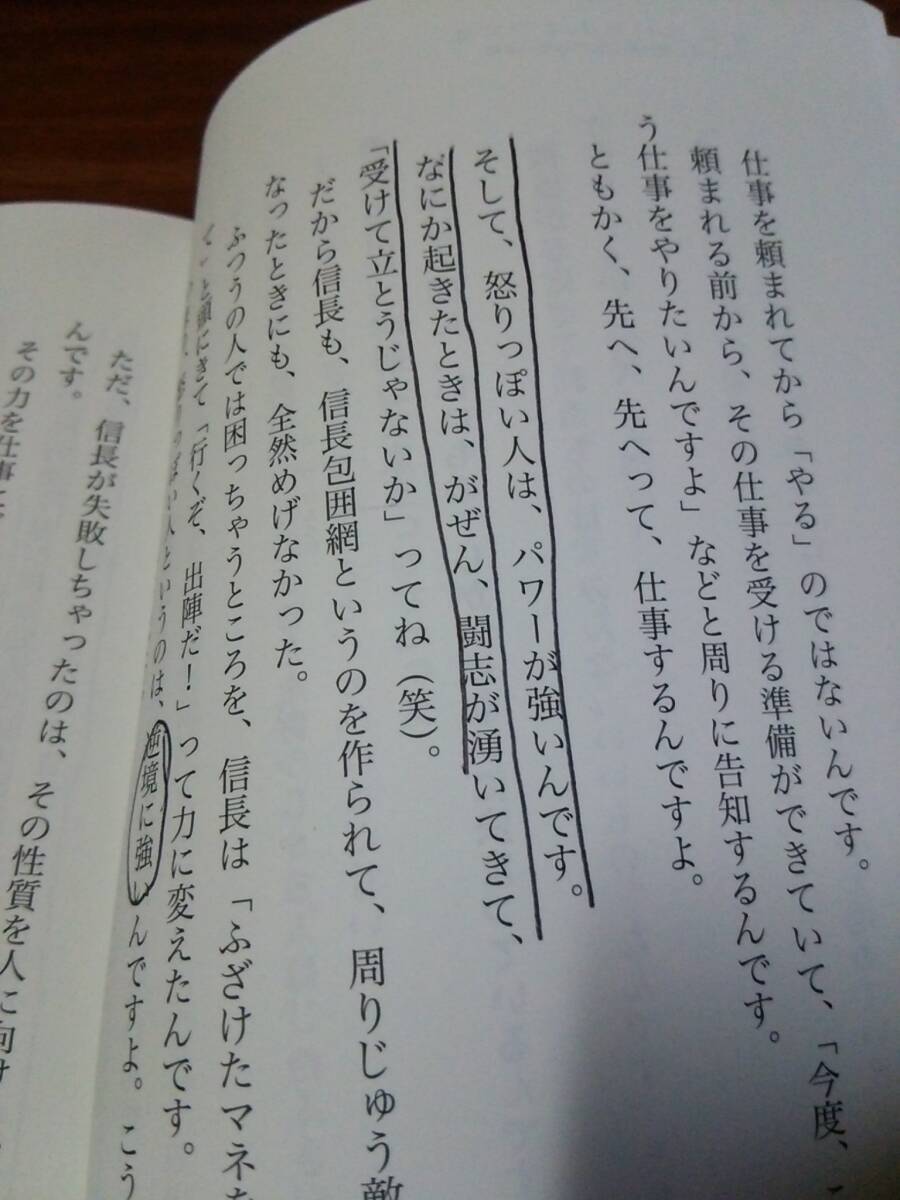 仕事を頼まれてから「やる」のではないんです。
頼まれる前から、その仕事を受ける準備ができていて、「今度、
う仕事をやりたいんですよ」などと周りに告知するんです。
ともかく、先へ、先へって、仕事するんですよ。
そして、怒りっぽい人は、パワーが強いんです。
なにか起きたときは、がぜん、闘志が湧いてきて、
「受けて立とうじゃないか」ってね（笑）。
だから信長も、信長包囲網というのを作られて、周りじゅう敵
なったときにも、全然めげなかった。
ふつうの人では困っちゃうところを、信長は「ふざけたマネを
と頭にきて「行くぞ、出陣だ！」って力に変えたんです。
人というのは、逆境に強いんですよ。こう
ただ、信長が失敗しちゃったのは、その性質を人に向け
んです。
その力を仕事に